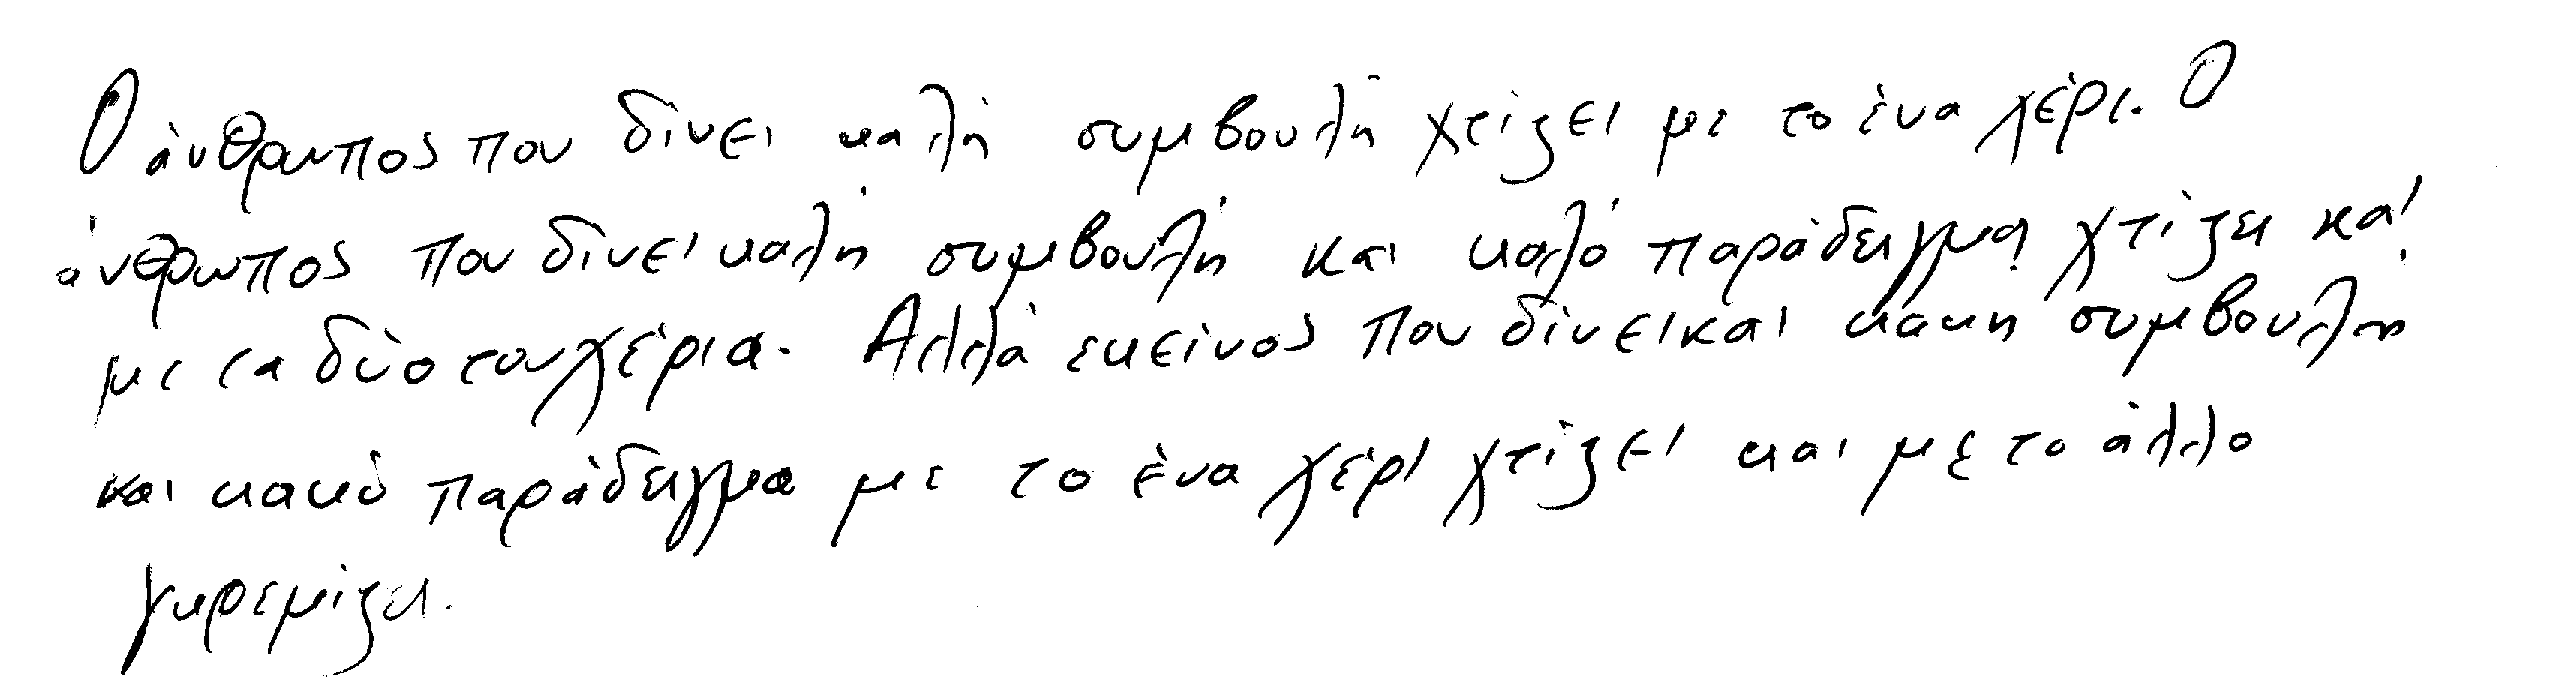 Ο άνθρωπος που δίνει καλή συμβουλή χτίζει με το ένα χέρι. Ο
άνθρωπος που δίνει καλή συμβουλή και καλό παράδειγμα χτίζει και
με τα δύο του χέρια. Αλλά εκείνος που δίνει και κακή συμβουλή
και κακό παράδειγμα με το ένα χέρι χτίζει και με το άλλο
γκρεμίζει.